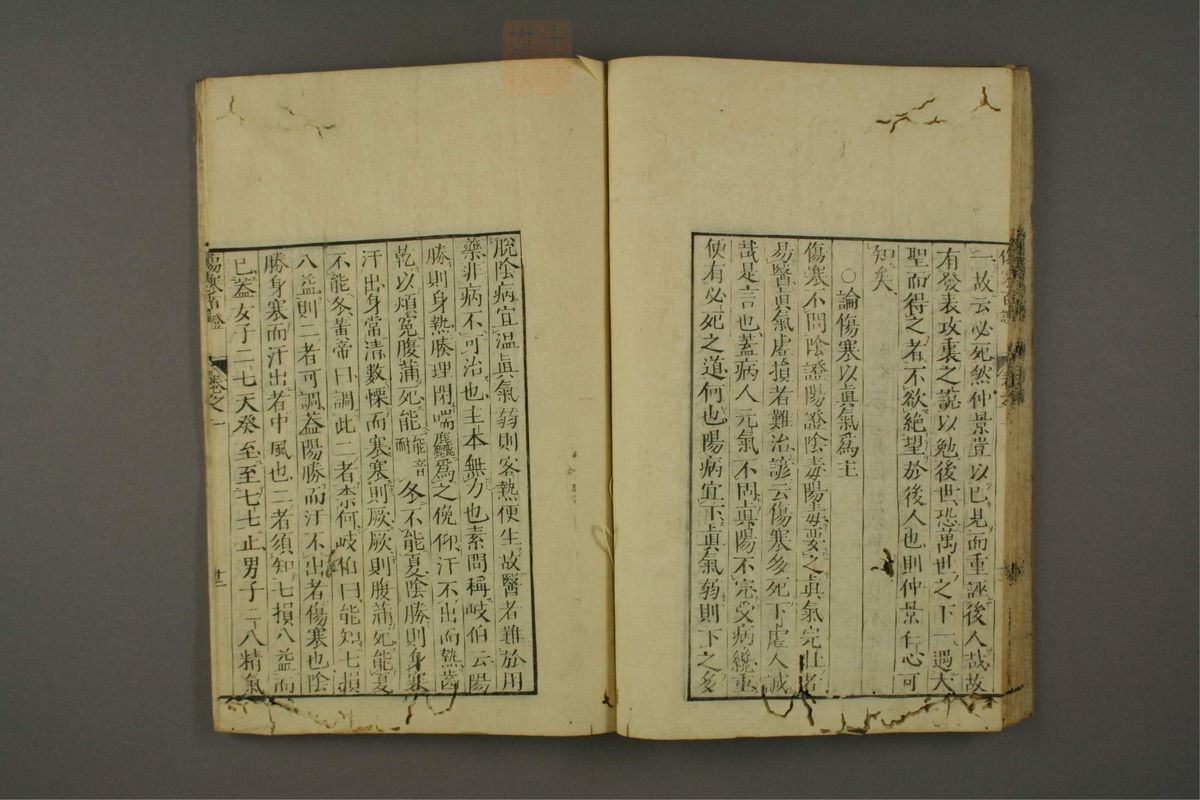 一故云必死然仲景豈以己見而重誣後人哉故
有發表攻裏之說以勉後世恐萬世之下一遇大
聖而得之者不欲絕望於後人也則仲景仁心可
知矣
○論傷寒以眞氣爲主
傷寒不問陰證陽證陰毒陽毒要之眞氣完壯者
易醫眞氣虛損者難治諺云傷寒多死下虛人誠
哉是言也蓋病人元氣不固眞陽不完受病纔重
便有必死之道何也陽病宜下眞氣弱則下之多
脫陰病宜溫眞氣弱則客熱便生故醫者難於用
藥非病不可治也主本無力也素問稱岐伯云陽
勝則身熱腠理閉喘麤爲之俛仰汗不出而熱齒
乾以煩冤腹滿死能音耐能冬不能夏陰勝則身寒
汗出身常清數慄而寒寒則厥厥則腹滿死能夏
不能冬黃帝曰調此二者柰何岐伯曰能知七損
八益則二者可調蓋陽勝而汗不出者傷寒也陰
勝身寒而汗出者中風也二者須知七損八益而
已蓋女子二七天癸至至七七止男子二八精氣
傷寒百證
卷之一
廿二